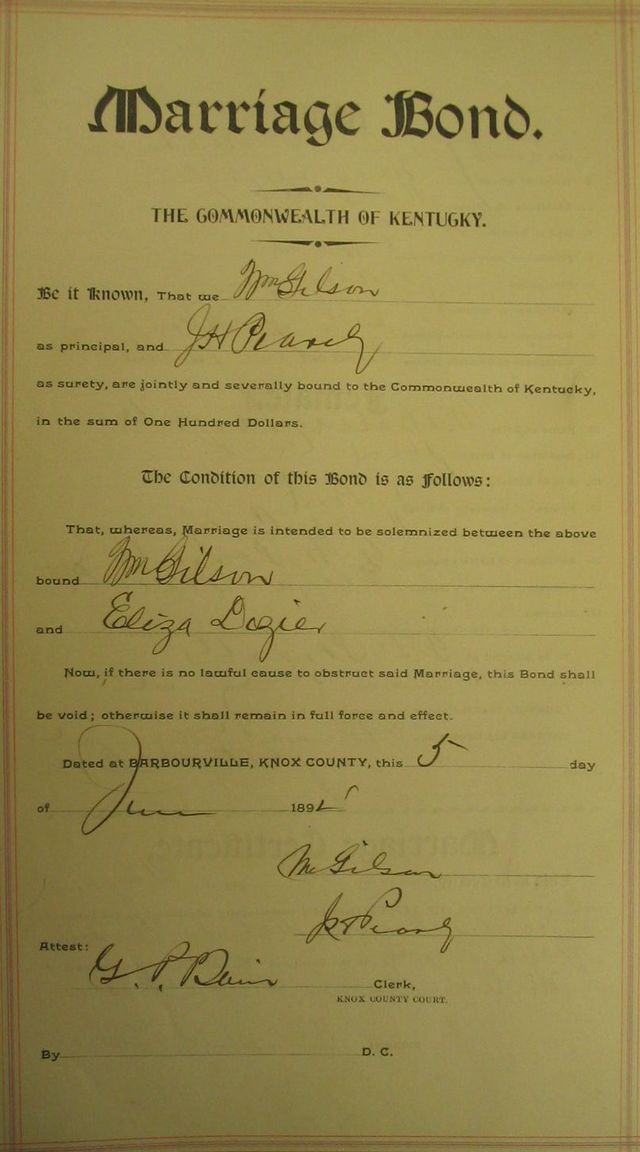 Marriage Bond.
THE COMMONWEALTH OF KENTUCKY.
Be it Known, That we Wm Gilson
as principal, and J H
as surety, are jointly and severally bound to the Commonwealth of Kentucky,
in the sum of One Hundred Dollars.
The Condition of this Bond is as Follows:
That, whereas, Marriage is intended to be solemnized between the above
bound Wm Gilson
and Eliza Dozier
Now, if there is no lawful cause to obstruct said Marriage, this Bond shall
be void; otherwise it shall remain in full force and effect.
Dated at BARBOURVILLE, KNOX COUNTY, this 5 day
of June 189
Wm Gilson
J H
Attest:
G. P. Clerk,
KNOX COUNTY COURT.
By D. C.